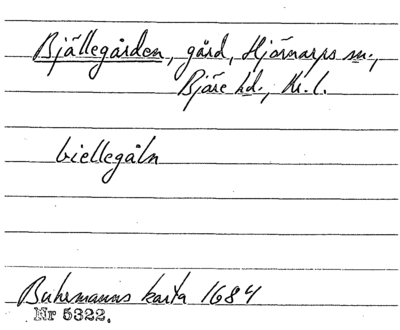 Bjällegården, gård, Hjärnarps sn.,
Bjäre hd., Kr. l.
biellegåln
Buhrmanns karta 1684
Nr 5322,